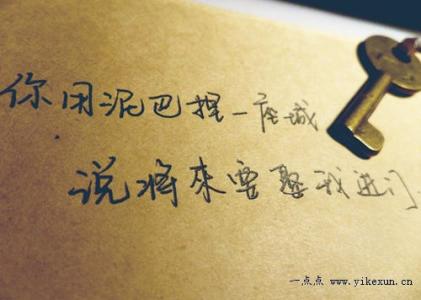 你用泥巴捏一座城
说将来要娶我进门
一点点 www.yikexun.cn